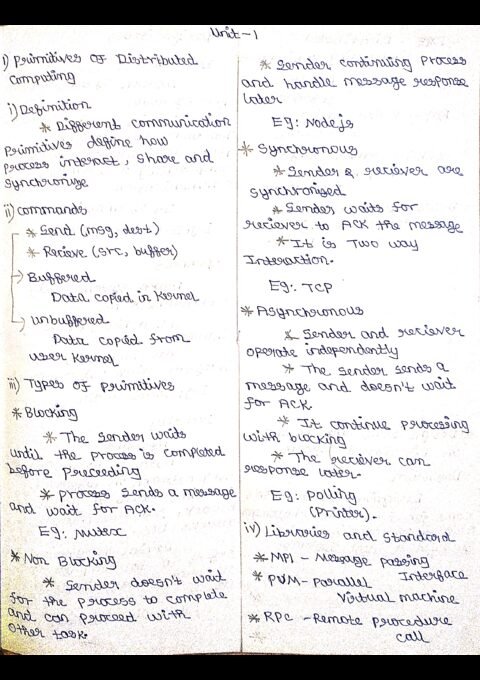 Unit-1
1) Primitives of Distributed
Computing
i) Definition
* Different communication
primitives define how
process interact, share and
synchronize
ii) commands
* Send (msg, dest)
* Recieve (src, buffer)
→ Buffered
Data copied in Kernel
→ unbuffered
Data copied from
user Kernel
iii) Types of primitives
* Blocking
* The Sender waits
until the process is completed
before preceeding
* process sends a message
and wait for ACK.
Eg: Mutex
* Non Blocking
* Sender doesn't wait
for the process to complete
and can proceed with
other task.
* Sender continuing process
and handle message response
later
Eg: Nodejs
* Synchronous
* Sender & reciever are
synchronized
* Sender waits for
reciever to ACK the message
* It is Two way
Interaction.
Eg: TCP
* Asynchronous
* Sender and reciever
operate independently
* The sender sends a
message and doesn't wait
for ACK.
* It continue processing
with blocking
* The reciever can
response later.
Eg: Polling
(Printer).
iv) Libraries and Standard
* MPI - Message passing
Interface
* PVM - Parallel
Virtual machine
* RPC - Remote procedure
call